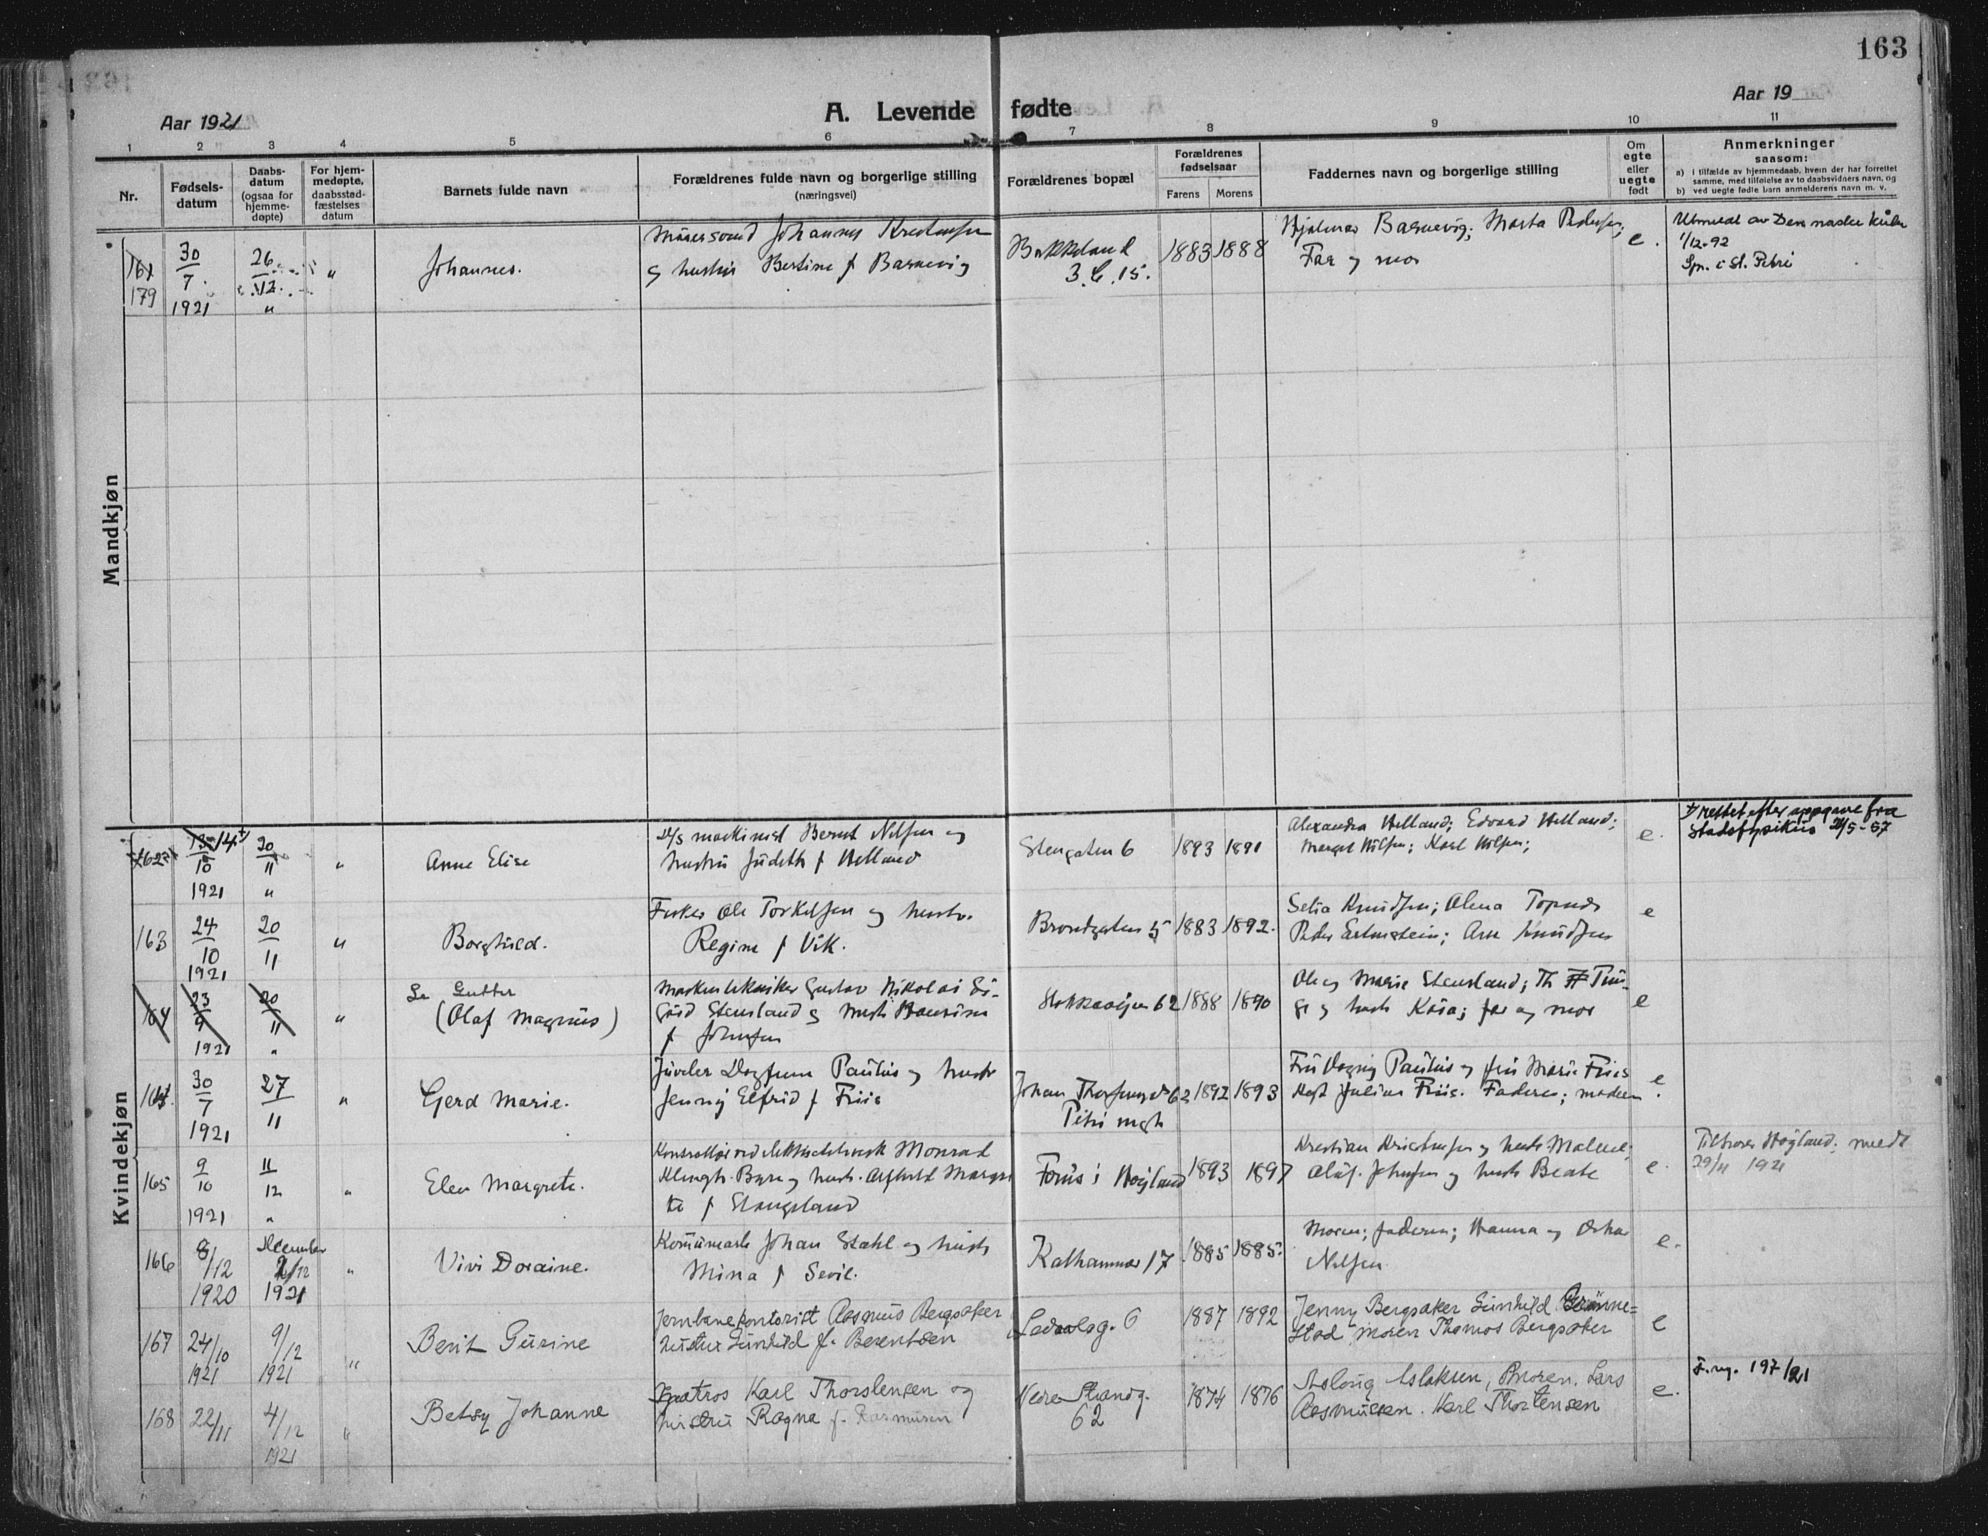 163
Aar 1921
A. Levende fødte
Aar 19
1 2 3 4 5 6 7 8 9 10 11
Nr.
Fødsels-
datum
Daabs-
datum
(ogsaa for
hjemme-
døpte)
For hjem-
medøpte,
daabsstad-
fæstelses
datum
Barnets fulde navn
Forældrenes fulde navn og borgerlige stilling
(næringsvei)
Forældrenes bopæl
Forældrenes
fødselsaar
Farens Morens
Faddernes navn og borgerlige stilling
Om
egte
eller
uegte
født
Anmerkninger
saasom:
a) i tilfælde av hjemmedaab, hvem der har forrettet
samme, med tilføielse av to daabsvidners navn, og
b) ved uegte fødte barn anmelderens navn m. v.
Mandkjøn
161
179
30
7
1921
26
12
"
"
Johannes.
Murersvend Johannes
og hustru Bertine f
Bakkeland
3.C.15.
1883 1888
Hjalmar Marta
Far og mor
e.
Utmeldt av Den norske kirke
1/12-92
Spr. i St. Petri
Kvindekjøn
162
13 14
10
1921
20
11
"
"
Anne Elise
D/S maskinist Bernt Nilsen og
hustru Judith f Helland
Stengaten 6
1893 1891
Alexandra Helland; Edvard Helland;
Margit Nilsen; Karl Nilsen;
e.
rettet efter oppgave fra
Stadsfysikus 24/5-57
163
24
10
1921
20
11
"
Borghild.
Fisker Ole Torkelsen og hustr.
Regine f Vik.
Brondgaten 5
1883 1892.
Selia Knudsen; Olena Topnes
Peder Arne Knudsen
e
164
23
9
1921
20
11
"
"
Se Gutter
(Olaf Magnus)
Gustav Nikolai Si-
gurd Stensland og hustr
f Johnsen
62
1888 1890
Ole og Marie Stensland; Th
og hustr Kaia; far og mor
e
164.
30
7
1921
27
11
"
Gerd Marie.
Juveler Dagfinn Paulus og hustr
Jenny Elfrid f Friis
Johan 62
Petri mgh
1892 1893
Fru Dagny Paulus og fru Marie Friis
Julius Friis. Faderen; moderen
e.
165
9
10
1921
11
12
"
"
Elen Margrete.
Monrad
og hustr. Alfhild Margre
te f Stangeland
Forus i Høyland
1893 1897
Kristian Kristensen og hustr Malene;
Olaf Johnsen og hustr Beate
e.
Tilhører Høyland; meldt
29/11 1921
166
8/12
1920
December
2/12
1921
"
Vivi Doraine.
Johan Stahl og hustr
Mina f Sevil.
Kathammer 17
1885 1885.
Moren; faderen; Hanna og Oskar
Nilsen
e.
167
24/10
1921
9/12
1921
"
Berit Gurine
Jernbanekontorist Rasmus Bergsaker
hustru Gunhild f. Berentsen
Ledaalsg. 6
1887 1892
Jenny Bergsaker Gunhild Brønne=
stad moren Thomas Bergsaker
e
168
22/11
4/12
1921
"
Betsy Johanne
Matros Karl Thorstensen og
hustru Ragna f. Rasmussen
Nedre Strandg.
62
1874 1876
Aslaug Aslaksen, moren. Lars
Rasmussen. Karl Thorstensen
e.
F. reg. 197/21